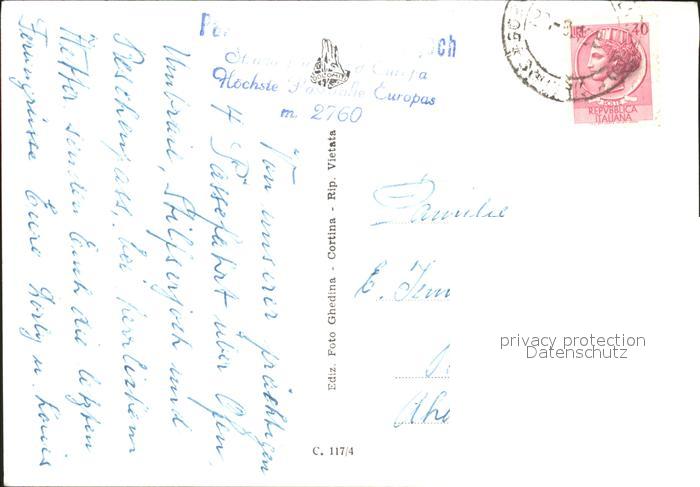 och
Höchste Paßstraße Europas
m. 2760
LIRE 40
POSTE
REPVBBLICA
ITALIANA
Von unserer prächtigen
4 Pässefahrt über Ofen,
Umbrail, Stilfserjoch und
Reschenpass, bei herrlichem
Wetter senden Euch die letzten
Feriengrüsse Eure Dorly u. Louis
Ediz. Foto Ghedina - Cortina - Rip. Vietata
Familie
E.
C. 117/4
privacy protection
Datenschutz